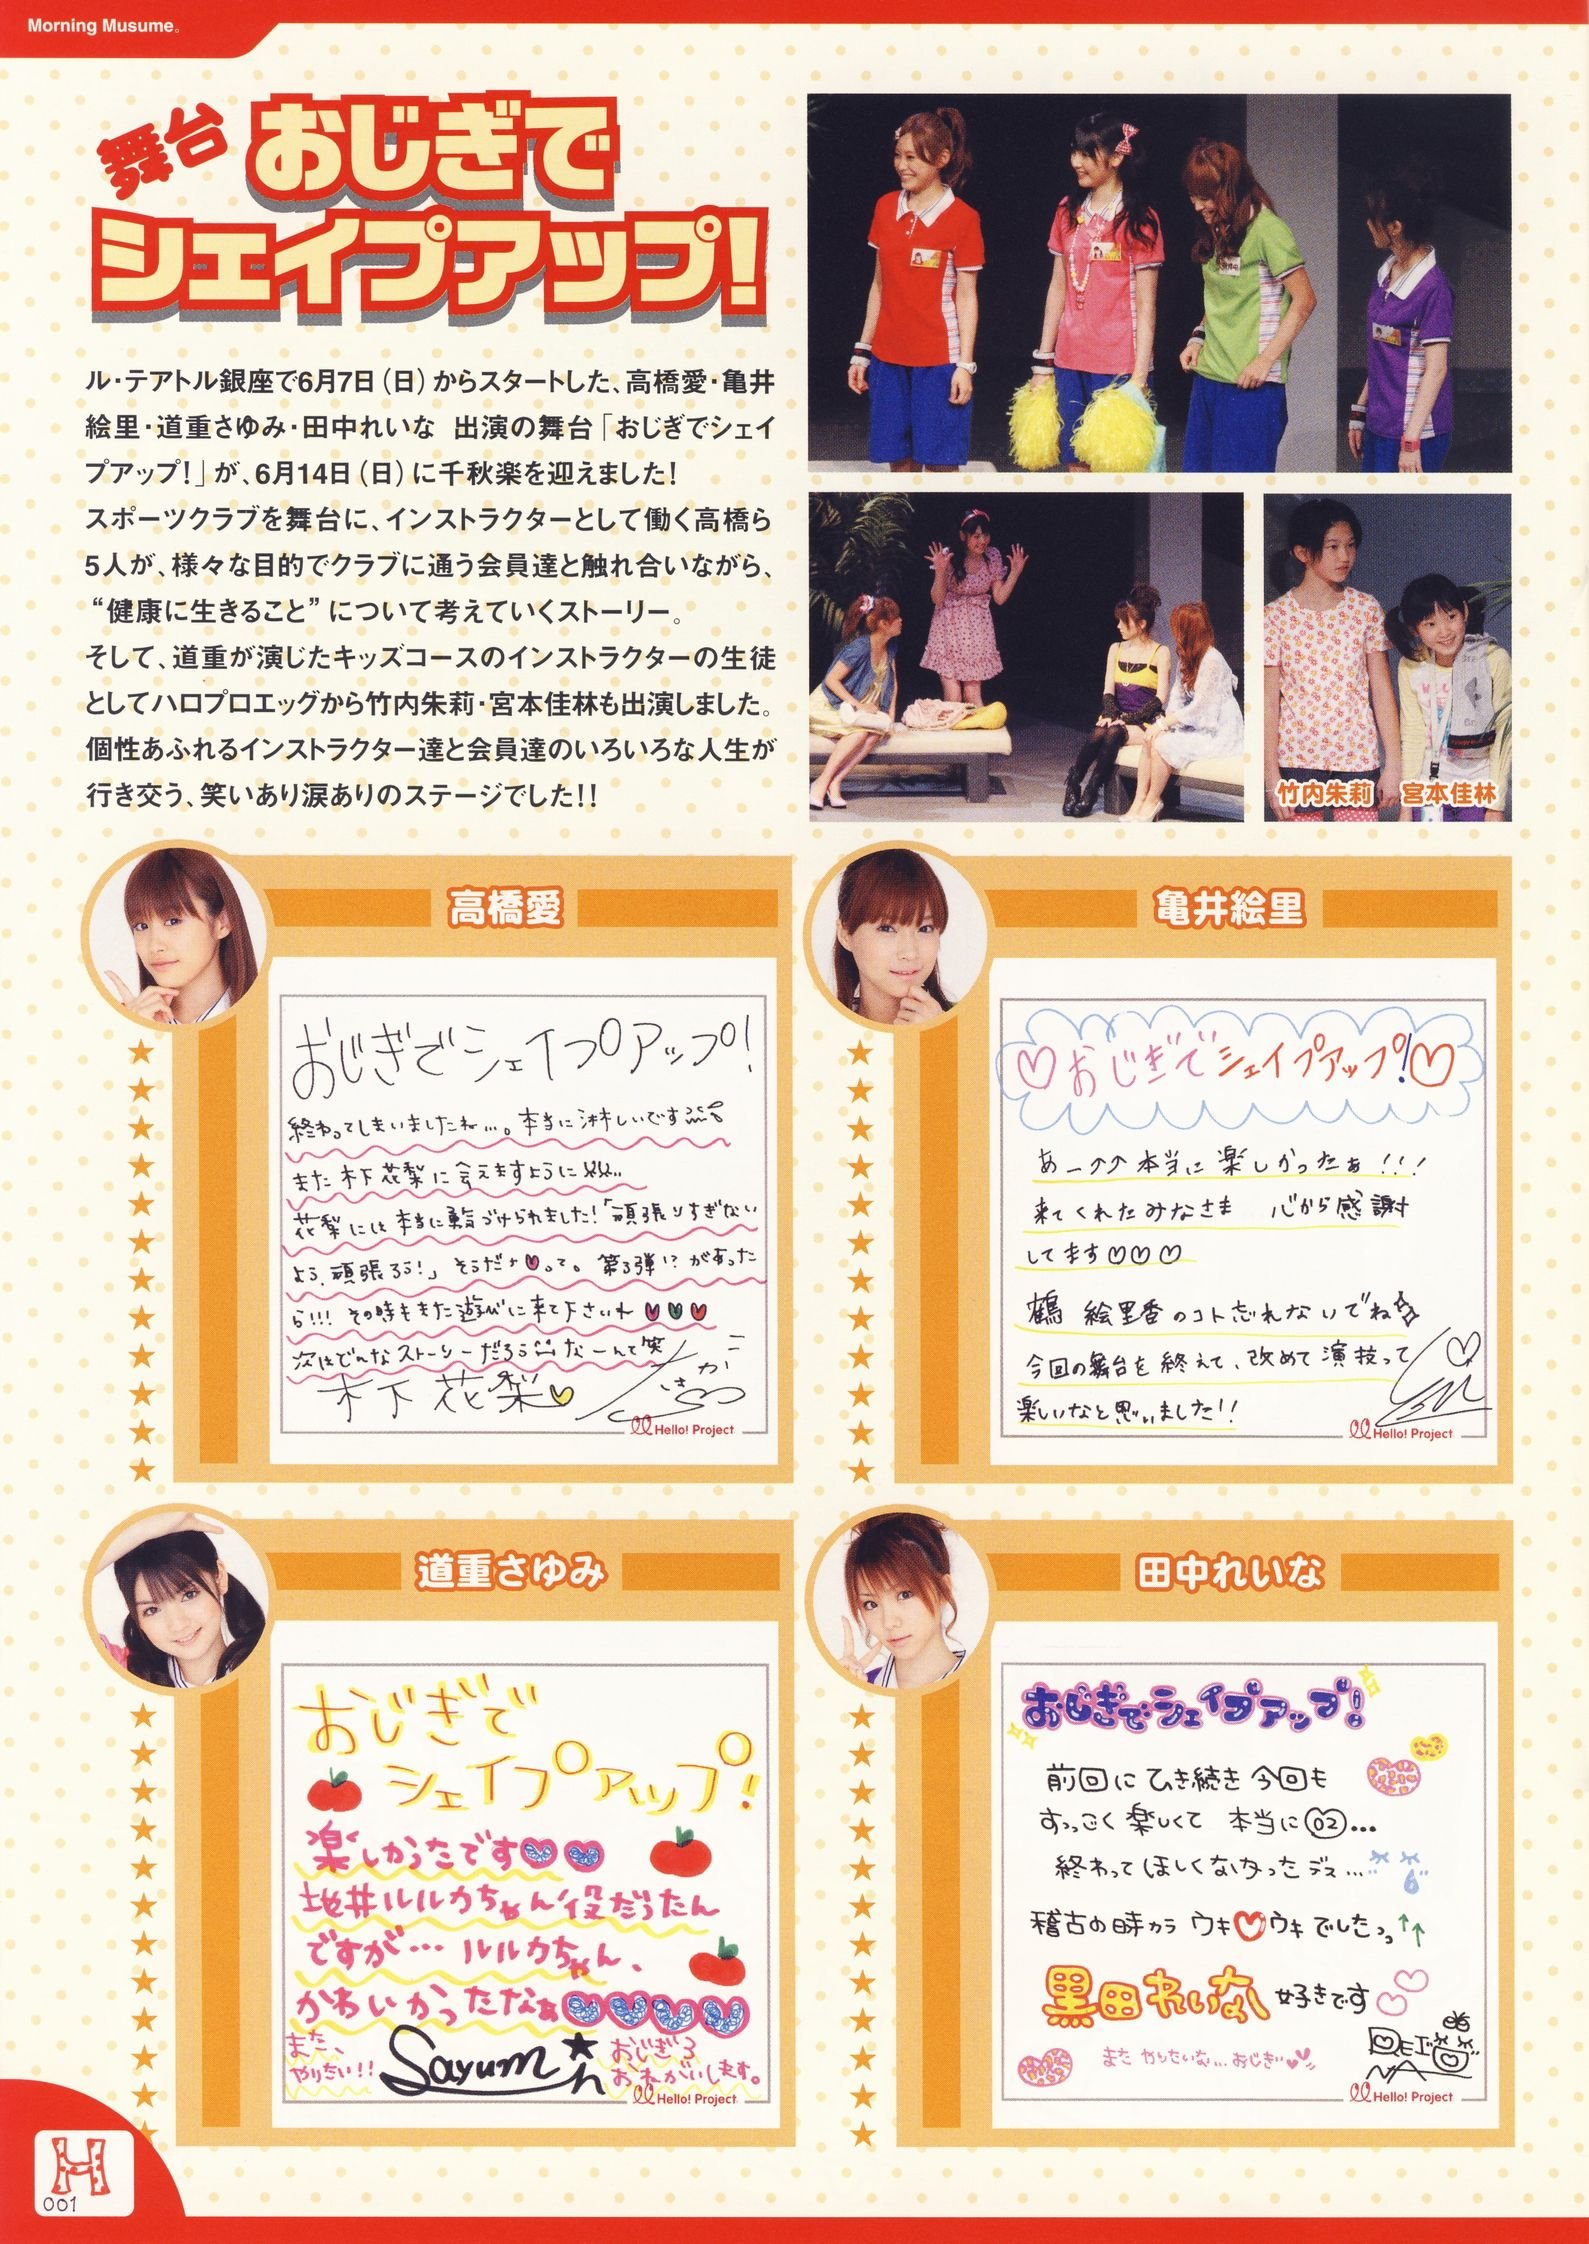 Morning Musume。
舞台 おじぎで
シェイプアップ!
ル・テアトル銀座で6月7日(日)からスタートした、高橋愛・亀井
絵里・道重さゆみ・田中れいな 出演の舞台「おじぎでシェイ
プアップ!」が、6月14日(日)に千秋楽を迎えました!
スポーツクラブを舞台に、インストラクターとして働く高橋ら
5人が、様々な目的でクラブに通う会員達と触れ合いながら、
“健康に生きること”について考えていくストーリー。
そして、道重が演じたキッズコースのインストラクターの生徒
としてハロプロエッグから竹内朱莉・宮本佳林も出演しました。
個性あふれるインストラクター達と会員達のいろいろな人生が
行き交う、笑いあり涙ありのステージでした!!
竹内朱莉 宮本佳林
高橋愛
おじぎでシェイプアップ!
終わってしまいましたね…。本当に淋しいです
また木下花梨に会えますように
花梨には本当に勇気づけられました!「頑張りすぎない
よう、頑張ろう!」そうだなって。第3弾!?があった
ら!!! その時もまた遊びに来て下さいね
次はどんなストーリーだろう なーんて笑
木下 花梨
Hello! Project
亀井絵里
おじぎでシェイプアップ!
あー↑↑本当に楽しかったぁ!!!
来てくれたみなさま 心から感謝
してます♡♡♡
鶴 絵里香のコト忘れないでね☆
今回の舞台を終えて、改めて演技って
楽しいなと思いました!!
Hello! Project
道重さゆみ
おじぎで
シェイプアップ!
楽しかったです
地井ルルカちゃん役だったん
ですが… ルルカちゃん、
かわいかったなぁ
また、
やりたい!!
Sayumin
おじぎ3
おねがいします。
Hello! Project
田中れいな
おじぎでシェイプアップ!
前回にひき続き今回も
すっごく楽しくて 本当に…
終わってほしくなかったデス…
稽古の時からウキ♡ウキでしたっ↑↑
黒田れいな 好きです
また やりたいな…おじぎ
REINA
Hello! Project
H
001